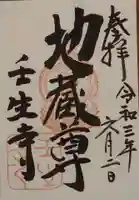 奉拝 令和三年六月二日
地蔵尊
壬生寺